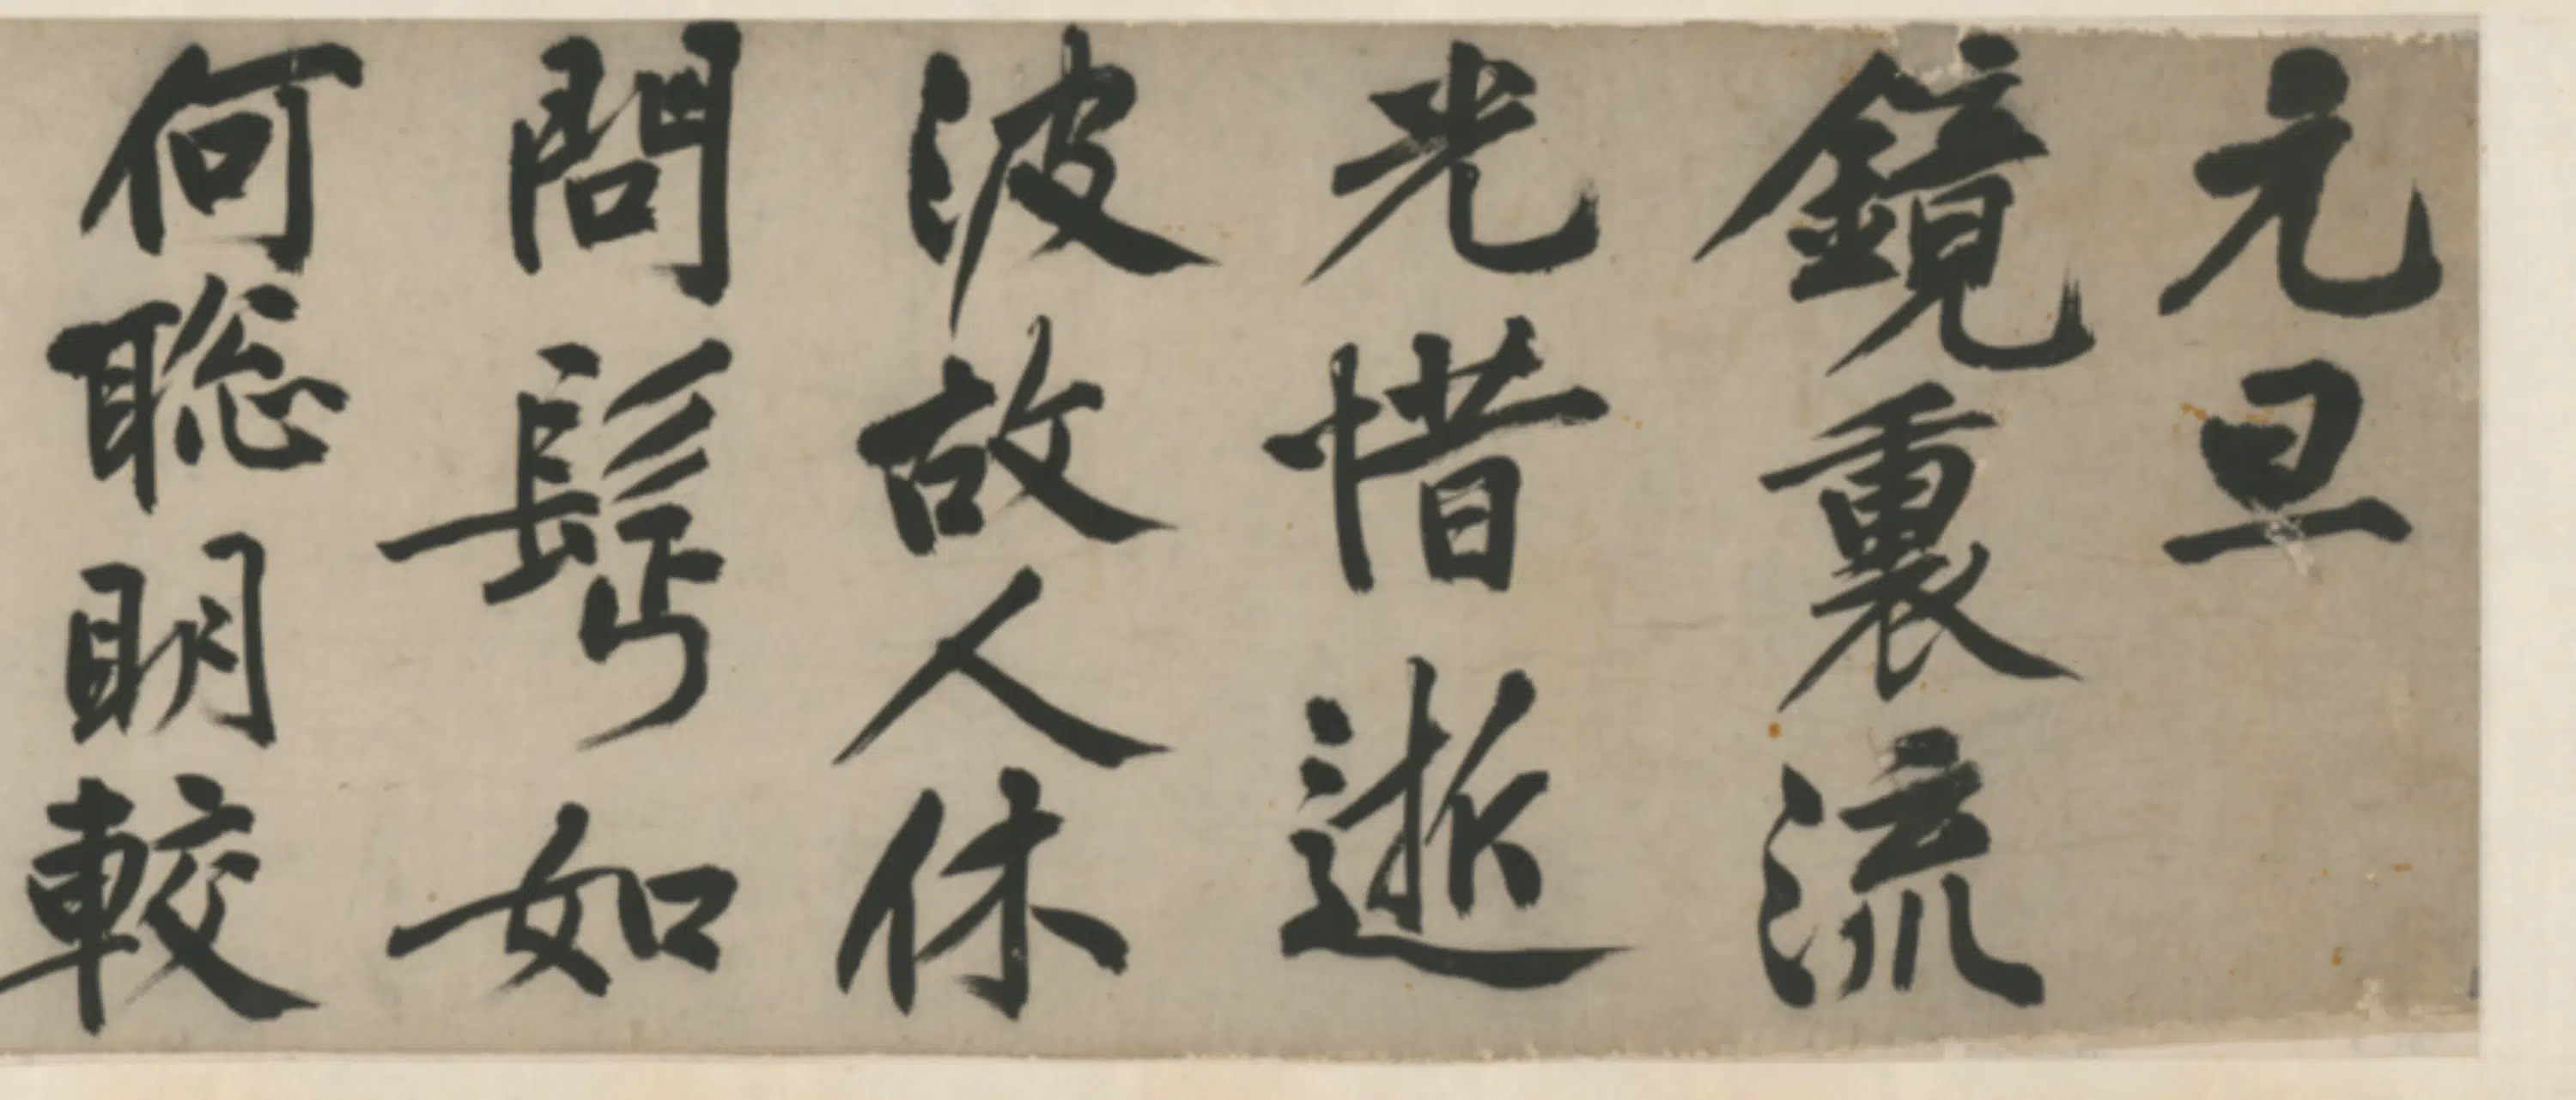 元旦
鏡裏流
光惜逝
波故人休
問鬢如
何聡明較